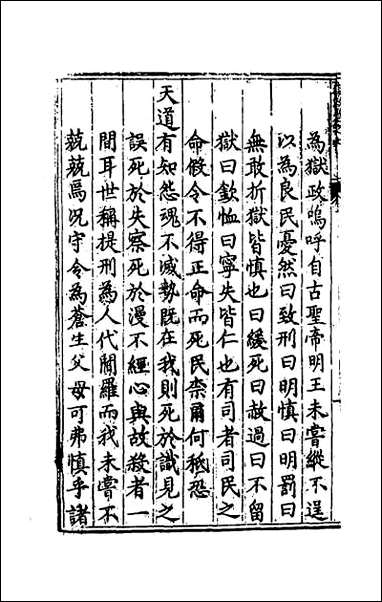 為獄政嗚呼自古聖帝明王未嘗縱不逞
以為良民憂然曰致刑曰明慎曰明罰曰
無敢折獄皆慎也曰緩死曰赦過曰不留
獄曰欽恤曰寧失皆仁也有司者司民之
命儻令不得正命而死民柰爾何秪恐
天道有知怨魂不滅勢既在我則死於識見之
誤死於失察死於漫不經心與故殺者一
間耳世稱提刑為人代閻羅而我未嘗不
兢兢焉况守令為蒼生父母可弗慎乎諸